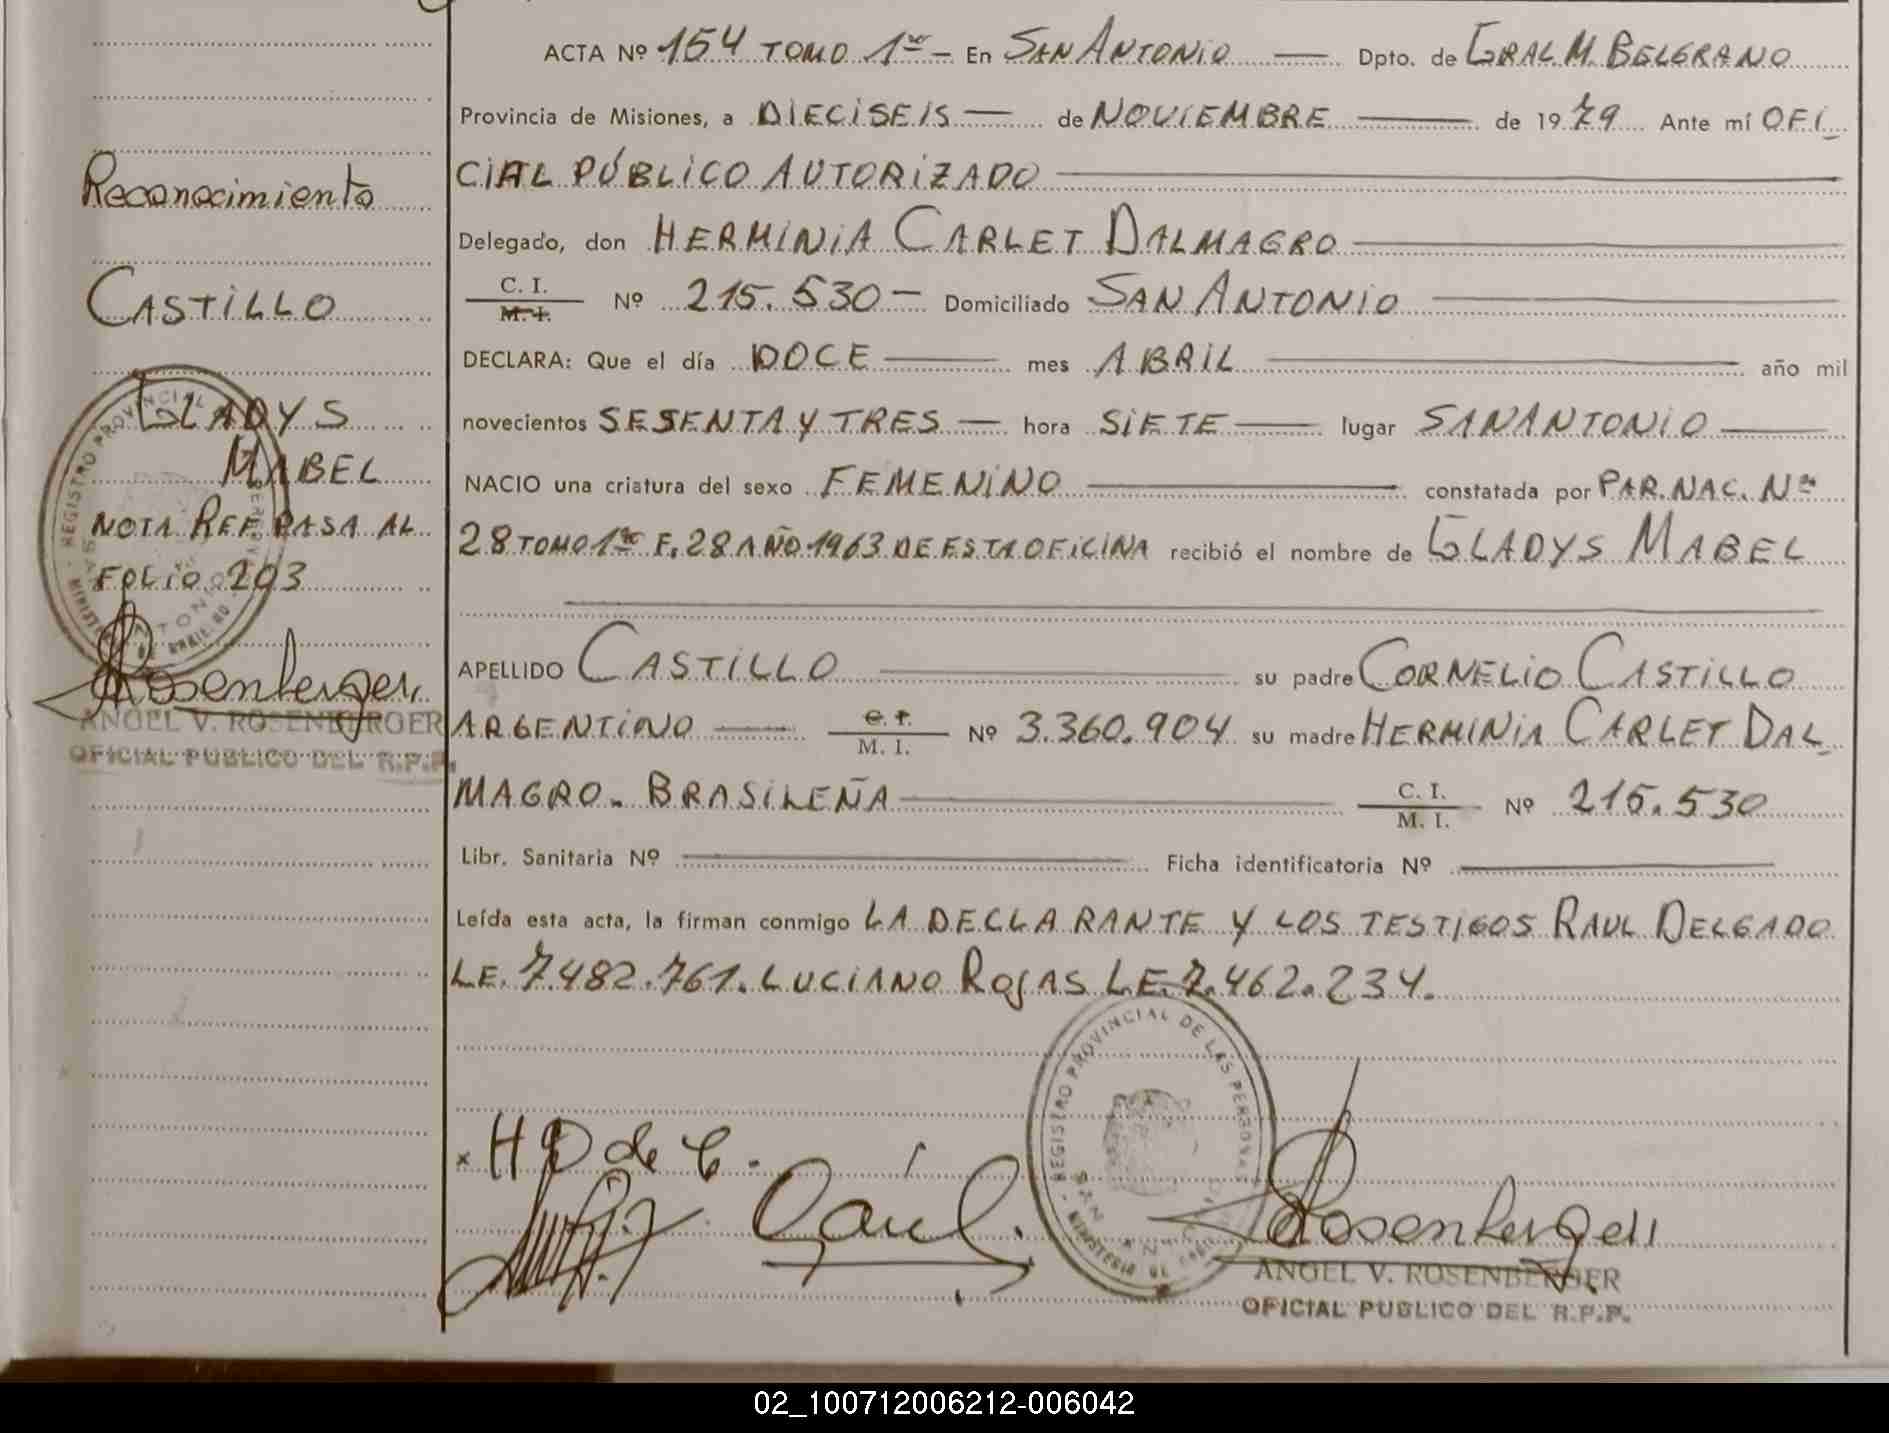 ACTA Nº 154 TOMO 1ro — En SAN ANTONIO — Dpto. de GRAL. M. BELGRANO
Provincia de Misiones, a DIECISEIS — de NOVIEMBRE — de 1979 Ante mí OFI_
CIAL PÚBLICO AUTORIZADO
Delegado, don HERMINIA CARLET DALMAGRO
C. I.
M. I.
Nº 215.530 — Domiciliado SAN ANTONIO
DECLARA: Que el día DOCE — mes ABRIL — año mil
novecientos SESENTA Y TRES — hora SIETE — lugar SAN ANTONIO —
NACIO una criatura del sexo FEMENINO — constatada por PAR. NAC. Nº
28 TOMO 1ro F. 28 AÑO 1963 DE ESTA OFICINA recibió el nombre de GLADYS MABEL
APELLIDO CASTILLO — su padre CORNELIO CASTILLO
ARGENTINO —
C. I.
M. I.
Nº 3.360.904 su madre HERMINIA CARLET DAL_
MAGRO. BRASILEÑA —
C. I.
M. I.
Nº 215.530
Libr. Sanitaria Nº — Ficha identificatoria Nº —
Leída esta acta, la firman conmigo LA DECLARANTE Y LOS TESTIGOS RAUL DELGADO
LE. 7.482.761. LUCIANO ROJAS LE. 7.462.234.
Reconocimiento
CASTILLO
GLADYS
MABEL
NOTA REF. PASA AL
FOLIO 203
Rosenberger
ANGEL V. ROSENBERGER
OFICIAL PUBLICO DEL R.P.P.
REGISTRO PROVINCIAL
x H D de C.
REGISTRO PROVINCIAL DE LAS PERSONAS
SAN ANTONIO
MINISTERIO DE
Rosenberger
ANGEL V. ROSENBERGER
OFICIAL PUBLICO DEL R.P.P.
02_100712006212-006042